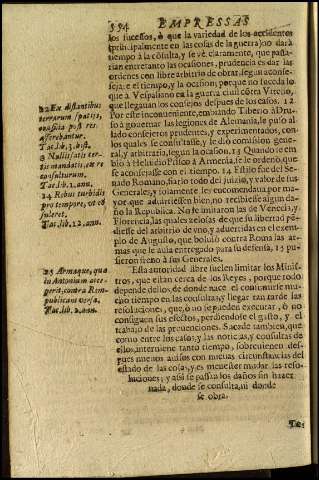 594 EMPRESSAS
los sucessos, ò que la variedad de los accidentes
(principalmente en las cosas de la guerra) no darà
tiempo à la cõsulta, y se vè claramente, que passa-
rian entretanto las ocasiones, prudencia es dar las
ordenes con libre arbitrio de obrar, segun aconse-
seja: e el tiempo, y la ocasion; porque no suceda lo
que à Vespasiano en la guerra civil côtra Vitelio,
que llegauan los consejos despues de los casos. 12
Por este inconueniente, embiando Tiberio à Dru-
so à gouernar las legiones de Alemania, le puso al
lado consejeros prudentes, y experimentados, con
los quales se consultasse, y le diò comission gene-
ral, y arbitraria, segun la ocasion. 13 Quando se em-
biò à Helvidio Prisco à Armenia, se le ordenò, que
se aconsejasse con el tiempo. 14 Estilo fue del Se-
nado Romano, fiarlo todo del juizio, y valor de sus
Generales, y solamente les encomendaua por ma-
yor, que aduirtiessen bien, no recibiesse algun da-
ño la Republica. No le imitaron las de Venecia, y
Florencia, las quales zelosas de que su libertad pẽ-
diesse del arbitrio de vno, y aduertidas en el exem-
plo de Augusto, que boluiò contra Roma las ar-
mas que le auia entregado para su defensa, 15 pu-
sieron freno à sus Generales.
Esta autoridad libre suelen limitar los Minis-
tros, que estan cerca de los Reyes, porque todo
dependa dellos: de donde nace el consumirse mu-
cho tiempo en las consultas, y llegar tan tarde las
resoluciones, que, ò no se pueden executar, ò no
consiguen sus efectos, perdiendose el gasto, y el
trabajo de las preuenciones. Sucede tambien, que
como entre los casos, y las noticias, y consultas de
ellos, interuiene tanto tiempo, sobreuienen des-
pues nueuos auisos con nueuas circunstancias del
estado de las cosas, y es menester mudar las reso-
luciones; y assi se passan los daños sin hazer
nada, donde se consulta, ni donde
se obra.
12 Ex distantibus
terrarum spatijs,
consilia post res
afferebantur.
Tac. lib. 3. hist.
Tac. lib. 1. ann.
14 Rebus turbidis
pro tempore, vt cõ
suleret,
Tac. lib. 12. ann.
15 Armaque, qua
in Antonium acce-
perit, contra Rem-
publicam versa.
Tac. lib. 1. ann.